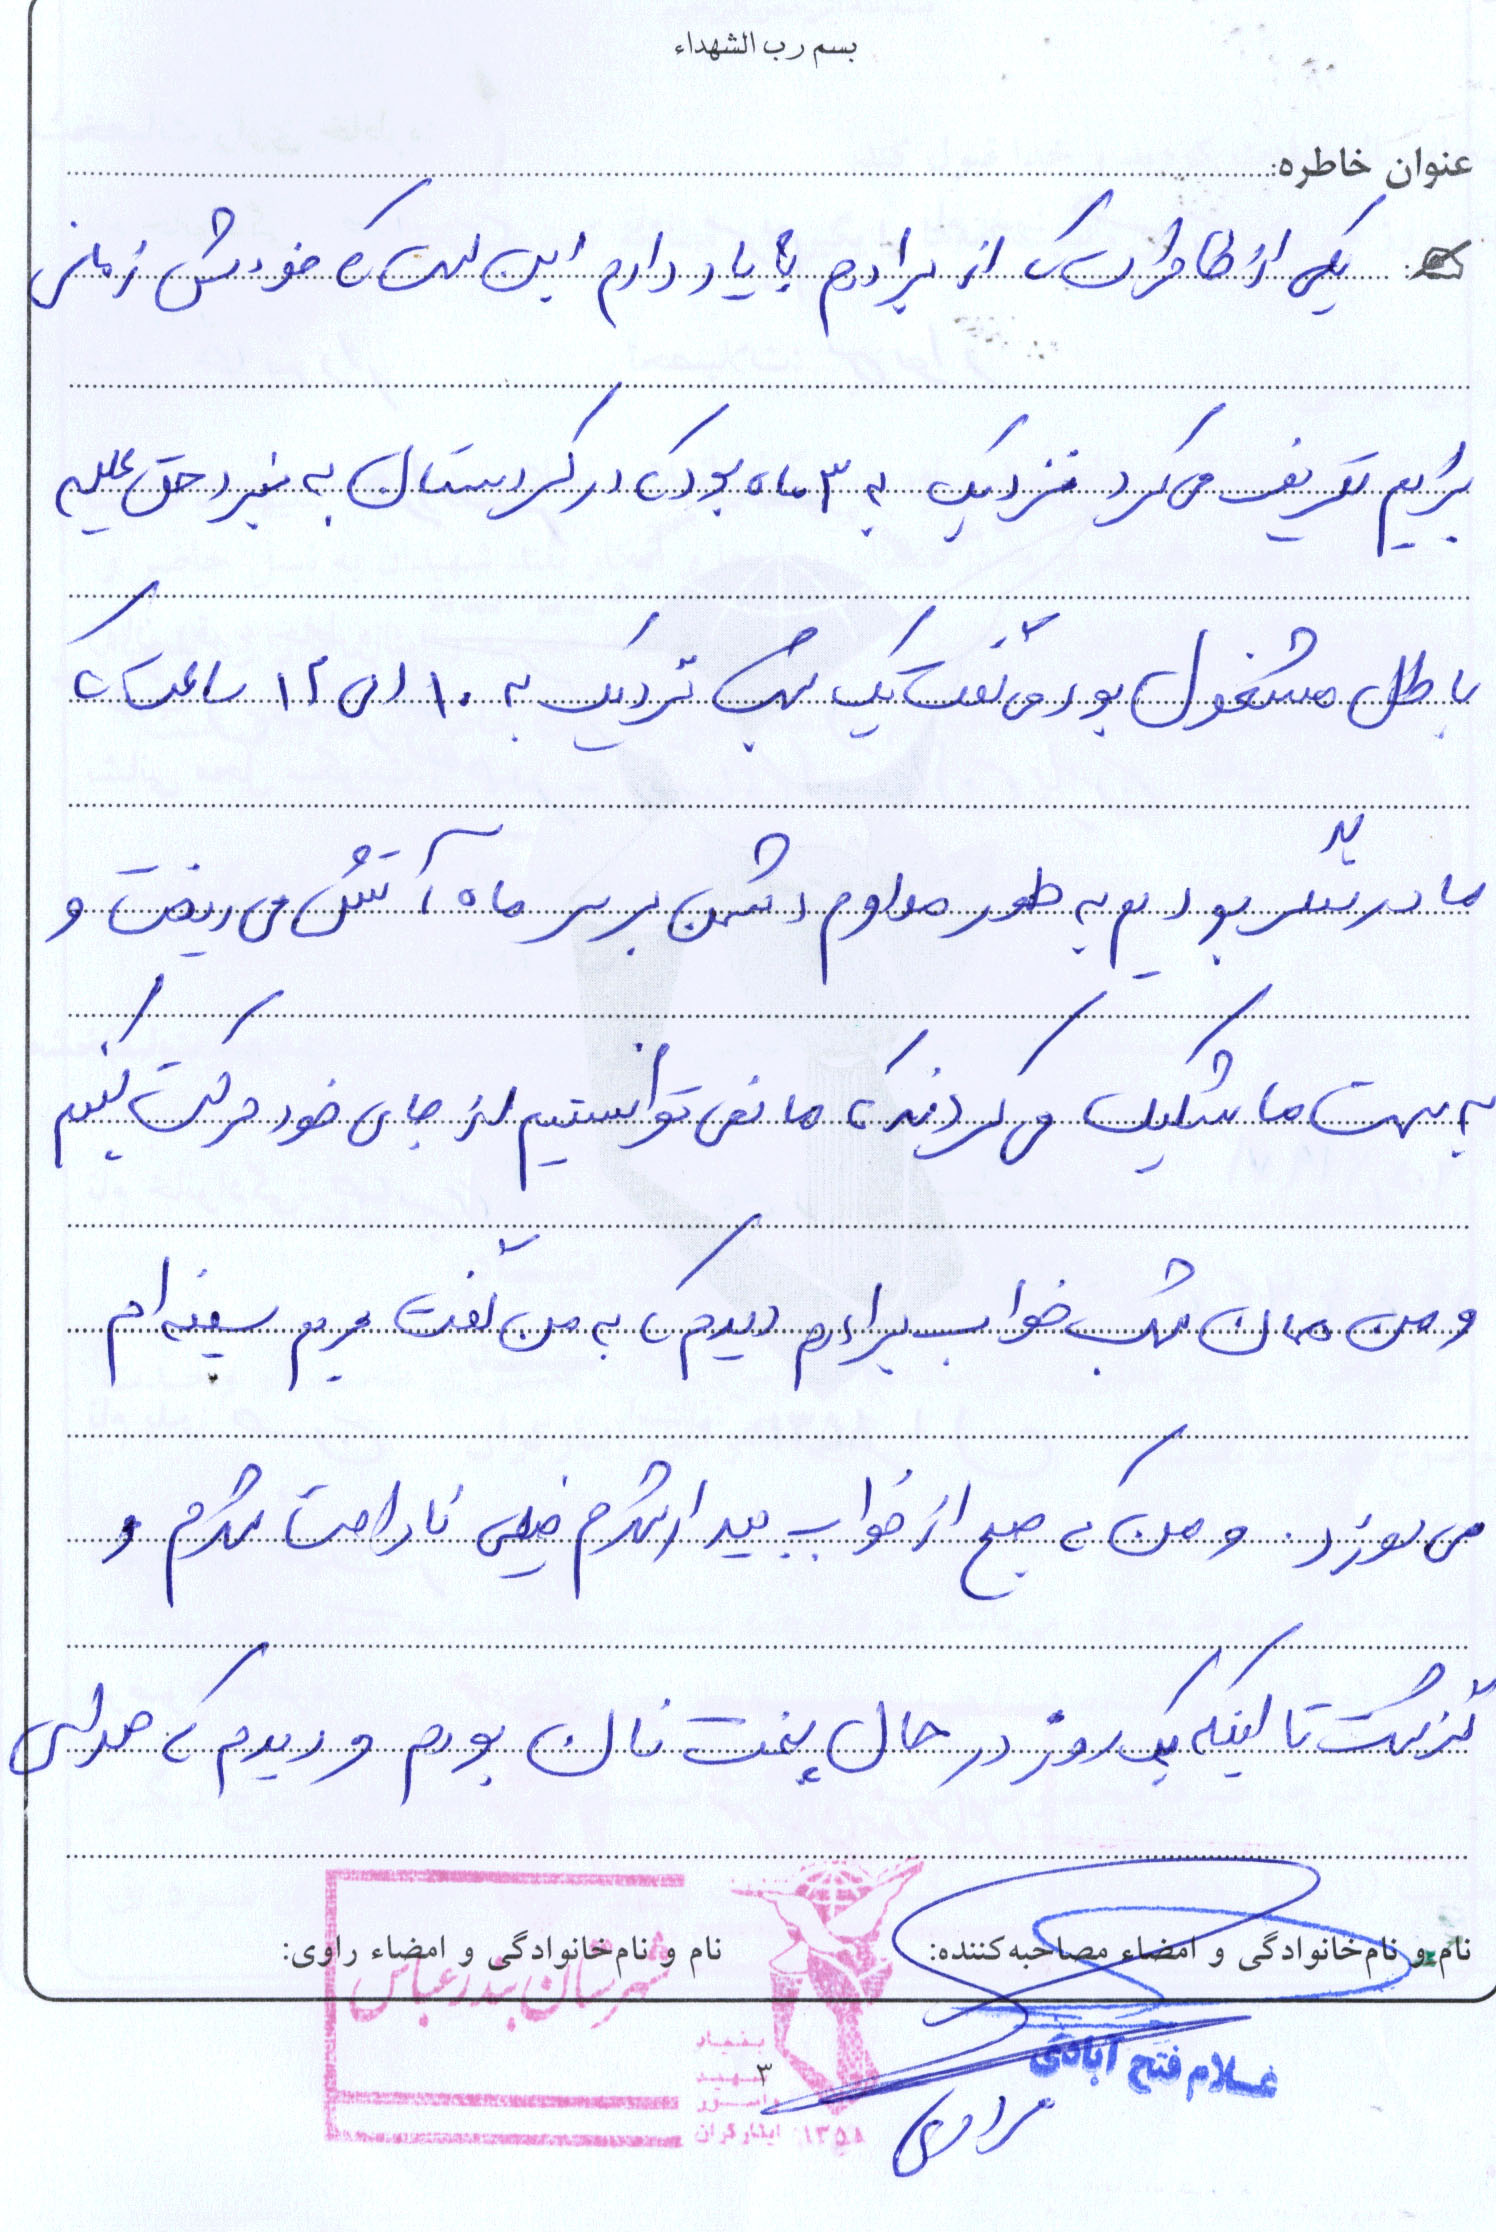 بسم رب الشهداء
عنوان خاطره:
یکی از خاطراتی که از برادرم به یاد دارم این است که خودش زمانی
برایم تعریف می کرد نزدیک به ۳ ماه بود که در کردستان به نبرد حق علیه
باطل مشغول بود می گفت یک شب نزدیک به ۱۰ الی ۱۲ ساعت که
ما در سنگر بودیم به طور مداوم دشمن بر سر ما آتش می ریخت و
به سمت ما شلیک می کردند که ما نمی توانستیم از جای خود حرکت کنیم
و من همان شب خواب برادرم دیدم که به من گفت مریم سینه ام
می سوزد. و من که صبح از خواب بیدار شدم خیلی ناراحت شدم و
گذشت تا اینکه یک روز در حال پخت نان بودم و دیدم که صدای
نام و نام خانوادگی و امضاء مصاحبه کننده:
نام و نام خانوادگی و امضاء راوی:
شهرستان بندرعباس
غلام فتح آبادی
بنیاد
شهید
و امور
ایثارگران
۱۳۵۸
۳